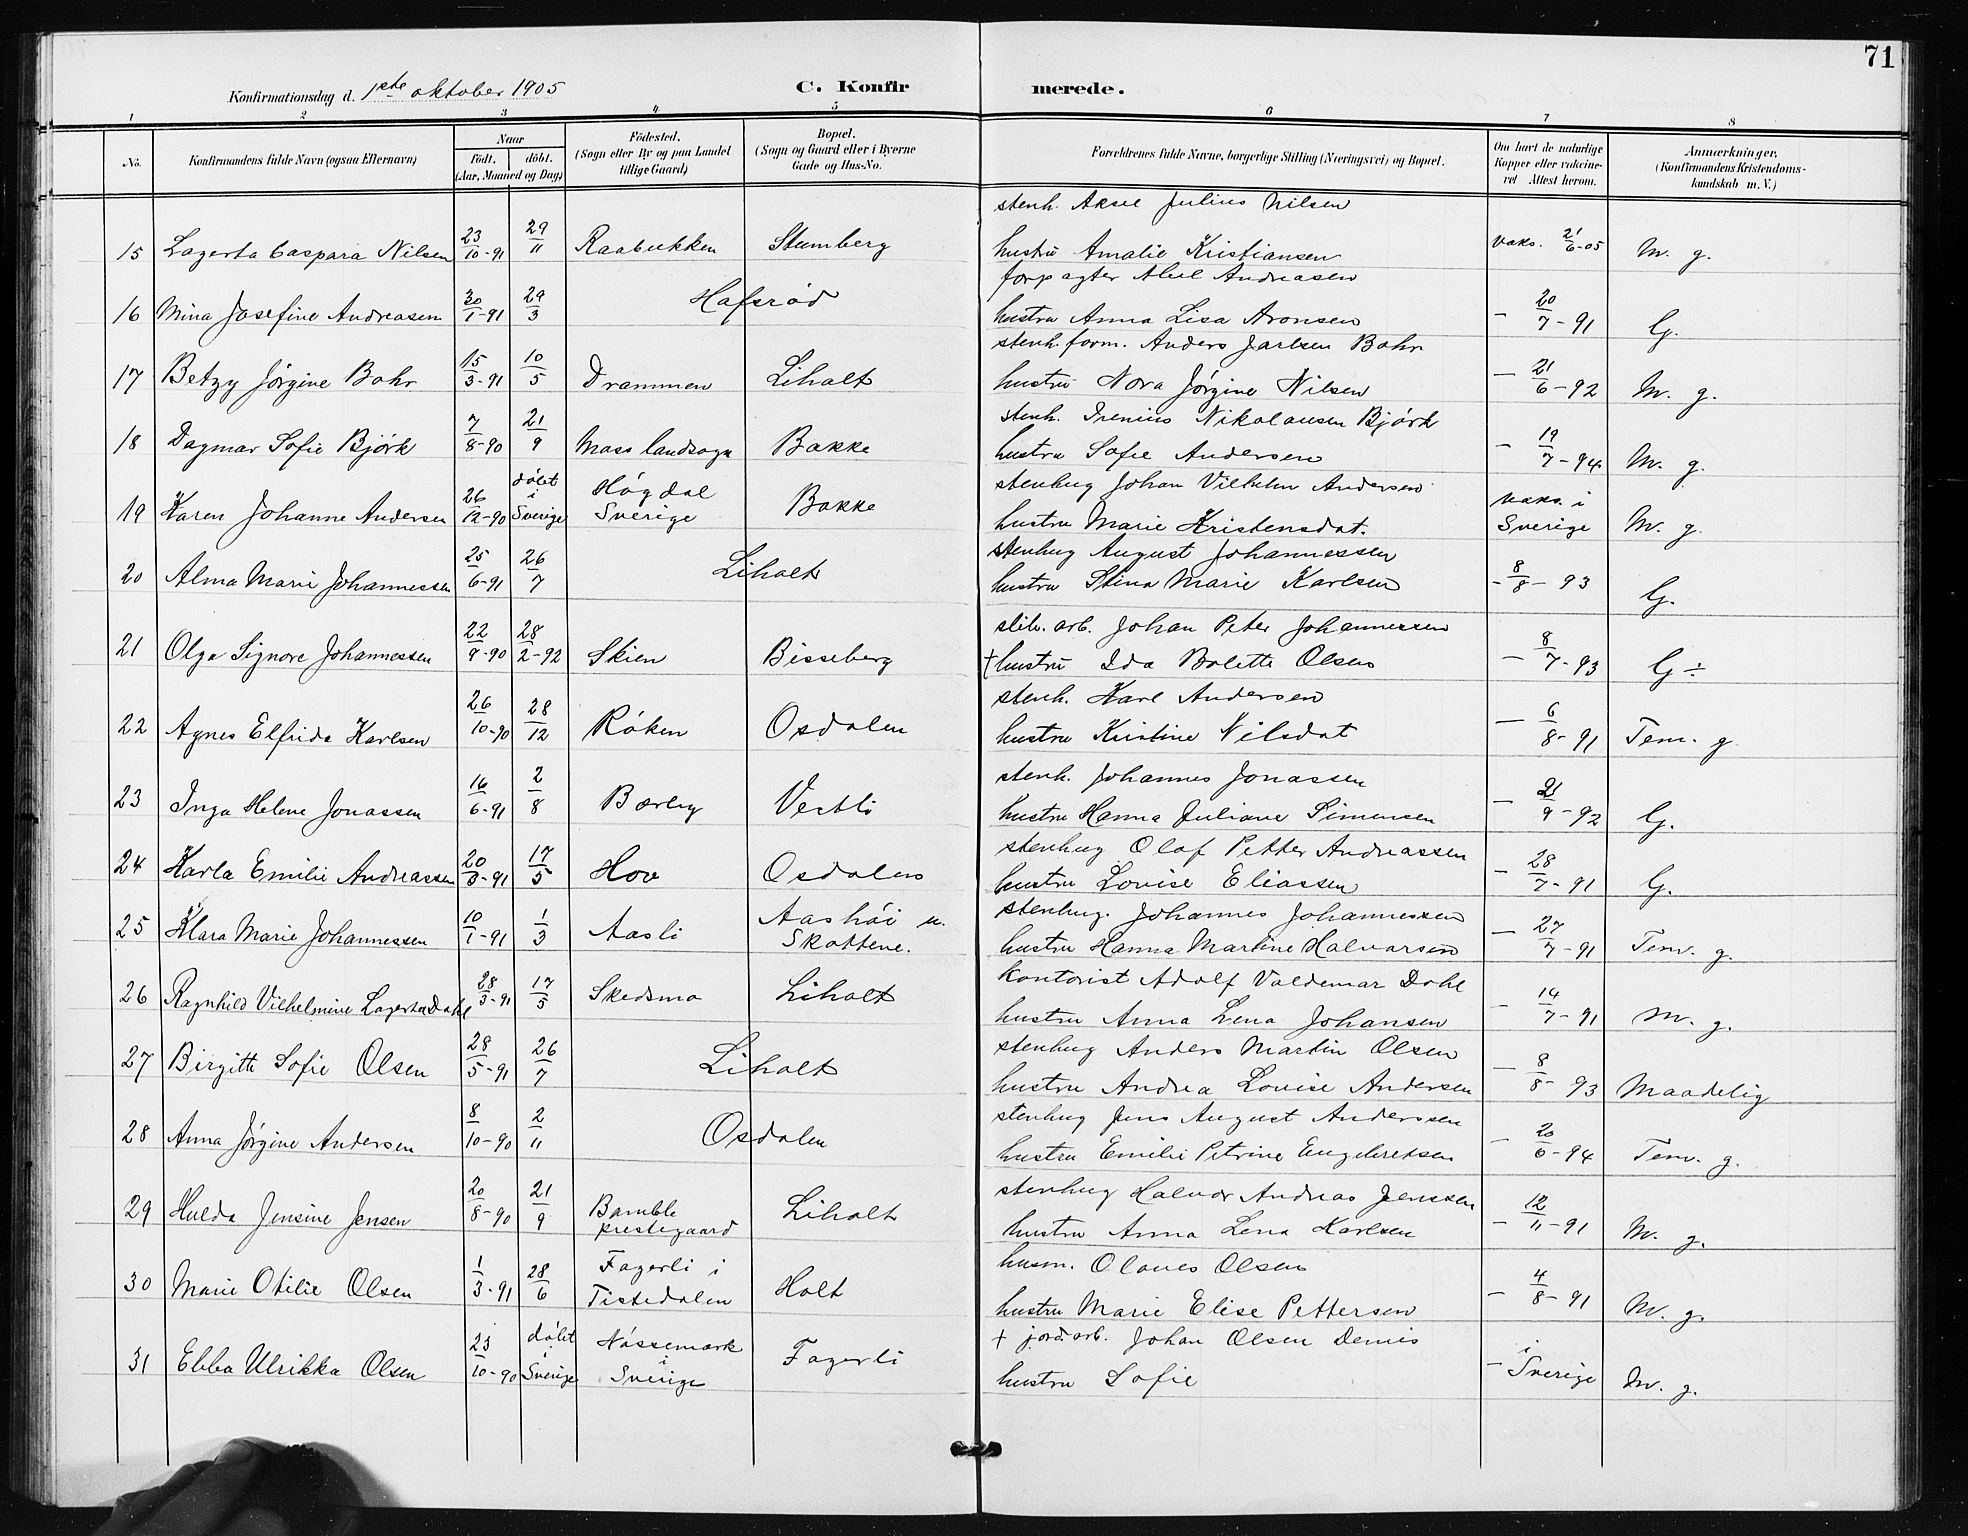 71
Konfirmationsdag d. 1ste oktober 1905 C. Konfirmerede.
1 2 3 4 5 6 7 8
No. Konfirmandens fulde Navn (ogsaa Efternavn) Naar födt. döbt. (Aar, Maaned og Dag) Födested. (Sogn eller By og paa Landet tillige Gaard) Bopæl. (Sogn og Gaard eller i Byerne Gade og Hus-No. Forældrenes fulde Navne, borgerlige Stilling (Næringsvei) og Bopæl. Om havt de naturlige Kopper eller vakcineret Attest herom. Anmærkninger, (Konfirmandens Kristendomskundskab m. V.)
stenh. Aksel Julius Nilsen
15 Lagerta Caspara Nilsen 23/10-91 29/11 Raabukken Stumberg hustru Amalie Kristiansen vaks. 21/6-05 M. g.
forpagter Abel Andreasen
16 Mina Josefine Andreasen 30/1-91 29/3 Hafsrød hustru Anna Lisa Aronsen - 20/7-91 G.
stenh.form. Anders Jarlsen Bohr
17 Betzy Jörgine Bohr 15/3-91 10/5 Drammen Liholt hustru Nora Jörgine Nilsen - 21/6-92 M. g.
stenh. Irenius Nikolausen Björk
18 Dagmar Sofie Björk 7/8-90 21/9 Moss landsogn Bakke hustru Sofie Andersen - 19/7-94 M. g.
stenhug Johan Vilhelm Andersen
19 Karen Johanne Andersen 26/12-90 döbt i Sverige Högdal Sverige Bakke hustru Marie Kristensdat. vaks. i Sverige M. g.
stenhug August Johannessen
20 Alma Marie Johannessen 25/6-91 26/7 Liholt hustru Stina Marie Karlsen - 8/8-93 G.
slib. arb. Johan Peter Johannessen
21 Olga Signore Johannessen 22/9-90 28/2-92 Skien Bisseberg † hustru Ida Bolette Olsen - 8/7-93 G ÷
stenh. Karl Andersen
22 Agnes Elfrida Karlsen 26/10-90 28/12 Röken Osdalen hustru Kristine Nilsdat - 6/8-91 Tem. g
stenh. Johannes Jonassen
23 Inga Helene Jonassen 16/6-91 2/8 Bærby Vestli hustru Hanna Juliane Simensen - 21/9-92 G.
stenhug Olaf Petter Andreassen
24 Karla Emilie Andreassen 20/3-91 17/5 Hov Osdalen hustru Lovise Eliassen - 28/7-91 G.
stenhug. Johannes Johannessen
25 Klara Marie Johannessen 10/1-91 1/3 Aasli Aashöi u. Skottene. hustru Hanna Martine Halvorsen - 27/7-91 Tem. g.
kontorist Adolf Valdemar Dahl
26 Ragnhild Vilhelmine Lagerta Dahl 28/3-91 17/5 Skedsmo Liholt hustru Anna Lena Johansen - 14/7-91 M. g.
stenhug Anders Martin Olsen
27 Birgitte Sofie Olsen 28/5-91 26/7 Liholt hustru Andrea Lovise Andersen - 8/8-93 Maadelig
stenhug Jens August Anderssen
28 Anna Jörgine Andersen 8/10-90 2/11 Osdalen hustru Emilie Petrine Engebretsen - 20/6-94 Tem. g.
stenhug Halvor Andreas Jenssen
29 Hulda Jensine Jensen 20/8-90 21/9 Bamble prestegaard Liholt hustru Anna Lena Karlsen - 12/11-91 M. g.
husm. Olaves Olsen
30 Marie Otilie Olsen 1/3-91 28/6 Fagerli i Tistedalen Holt hustru Marie Elise Pettersen - 4/8-91 M. g.
† jordarb. Johan Olsen Demis
31 Ebba Ulrikka Olsen 23/10-90 döbt i Sverige Nössemark i Sverige Fagerli hustru Sofie - i Sverige M. g.